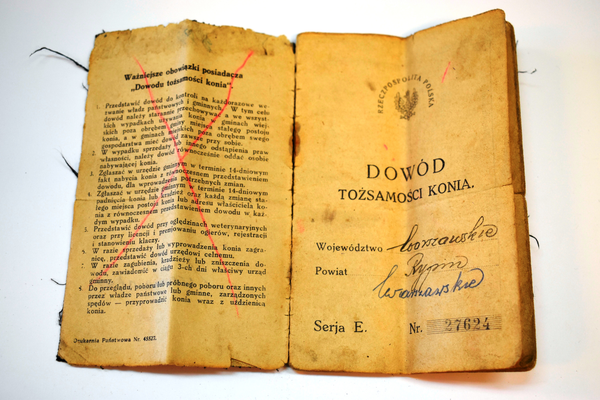 Ważniejsze obowiązki posiadacza
„Dowodu tożsamości konia”.
1. Przedstawić dowód do kontroli na każdorazowe we-
zwanie władz państwowych i gminnych. W tym celu
dowód należy starannie przechowywać, a we wszyst-
kich wypadkach używania konia w gminach wiej-
skich poza obrębem gminy miejsca stałego postoju
konia, a w gminach miejskich poza obrębem swego
gospodarstwa mieć dowód zawsze przy sobie.
2. W wypadku sprzedaży lub innego odstąpienia praw
własności, należy dowód równocześnie oddać osobie
nabywającej konia.
3. Zgłaszać w urzędzie gminnym w terminie 14-dniowym
fakt nabycia konia z równoczesnem przedstawieniem
dowodu, dla wprowadzenia potrzebnych zmian.
4. Zgłaszać w urzędzie gminnym w terminie 14-dniowym
padnięcie konia lub kradzież oraz każdą zmianę sta-
łego miejsca postoju konia lub adresu właściciela ko-
nia z równoczesnem przedstawieniem dowodu w każ-
dym wypadku.
5. Przedstawić dowód przy oględzinach weterynaryjnych
oraz przy licencji i premjowaniu ogierów, rejestracji
i stanowieniu klaczy.
W razie sprzedaży lub wyprowadzenia konia zagra-
nicę, przedstawić dowód urzędowi celnemu.
W razie zagubienia, kradzieży lub zniszczenia do-
wodu, zawiadomić w ciągu 3-ch dni właściwy urząd
gminny.
Do przeglądu, poboru lub próbnego poboru oraz innych
przez władze państwowe lub gminne, zarządzonych
spędów — przyprowadzić konia wraz z uździenicą
konia.
Drukarnia Państwowa Nr. 45527.
RZECZPOSPOLITA POLSKA
DOWÓD
TOŻSAMOŚCI KONIA.
Województwo warszawskie
Powiat Rypin
Warszawskie
Serja E. Nr. 27624